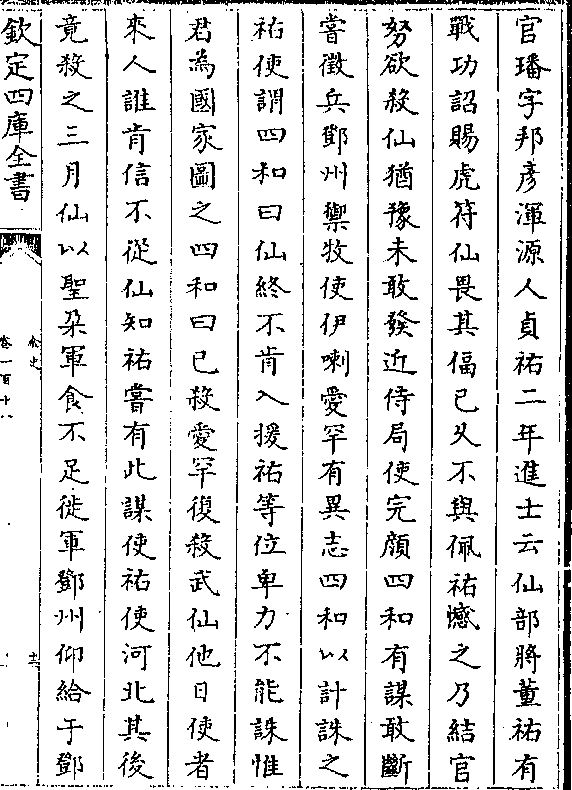 官璠字邦彥渾源人貞祐二年進士云仙部將董祐有
戰功詔賜虎符仙畏其偪已久不與佩祐憾之乃結官
努欲殺仙猶豫未敢發近侍局使完顔四和有謀敢斷
嘗徵兵鄧州禦牧使伊喇愛罕有異志四和以計誅之
祐使謂四和曰仙終不肯入援祐等位卑力不能誅惟
君為國家圖之四和曰已殺愛罕復殺武仙他日使者
來人誰肯信不從仙知祐嘗有此謀使祐使河北其後
竟殺之三月仙以聖朶軍食不足徙軍鄧州仰給于鄧
欽定四庫全書
金史
卷一百十八